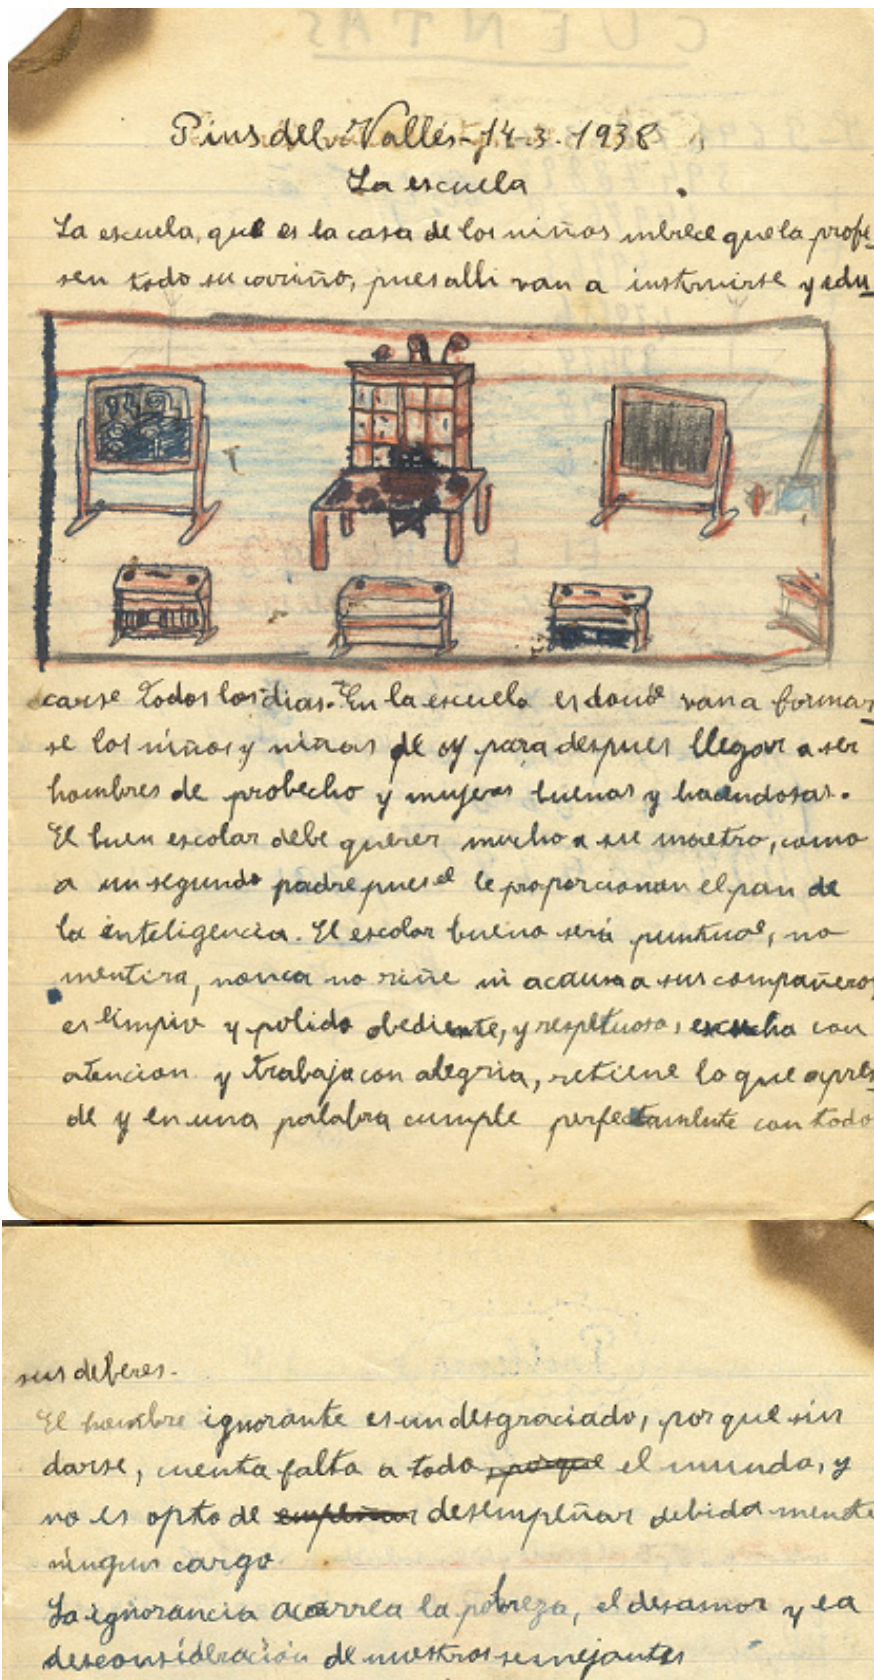 CUENTAS
Pins del Vallés-14-3-1938
La escuela
La escuela, que es la casa de los niños merece que la profe-
sen todo su cariño, pues alli van a instruirse y edu-
carse todos los dias. En la escuela es donde van a formar-
se los niños y niñas de oy para despues llegar a ser
hombres de probecho y mujeres buenas y hacendosas.
El buen escolar debe querer mucho a su maetro, como
a un segundo padre pues el le proporcionan el pan de
la inteligencia. El escolar bueno será puntual, no
mentira, nonca no riñe ni acausa a sus compañeros,
es limpio y polido obediente, y respetuoso, escucha con
atencion y trabaja con alegria, retiene lo que apren-
de y en una palabra cumple perfectamente con todo
sus deberes.
El hombre ignorante es un desgraciado, por que sin
darse, cuenta falta a todo, porque el mundo, y
no es apto de empeñar desempeñar debida mente
ningun cargo
La ignorancia acarrea la pobreza, el desamor y la
desconsideración de nuestros semejantes